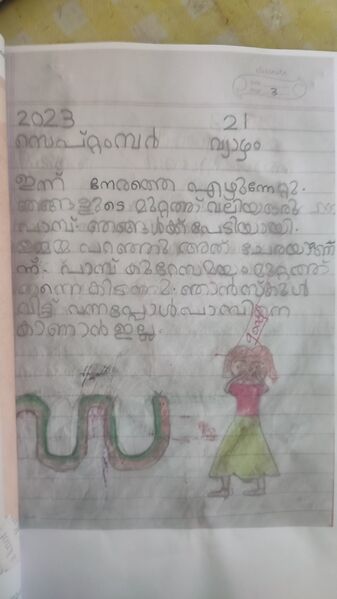 3
2023 21
സെപ്റ്റംമ്പർ വ്യാഴം
ഇന്ന് നേരത്തെ എഴുന്നേറ്റു.
ഞങ്ങളുടെ മുറ്റത്ത് വലിയൊരു
പാമ്പ്. ഞങ്ങൾക്ക് പേടിയായി.
ഉമ്മമ്മ പറഞ്ഞു അത് ചേരയാണെ
ന്ന്. പാമ്പ് കുറേസമയം മുറ്റത്ത്
തന്നെ കിടന്നു. ഞാൻസ്കൂൾ
വിട്ട് വന്നപ്പോൾ പാമ്പിനെ
കാണാൻ ഇല്ല.